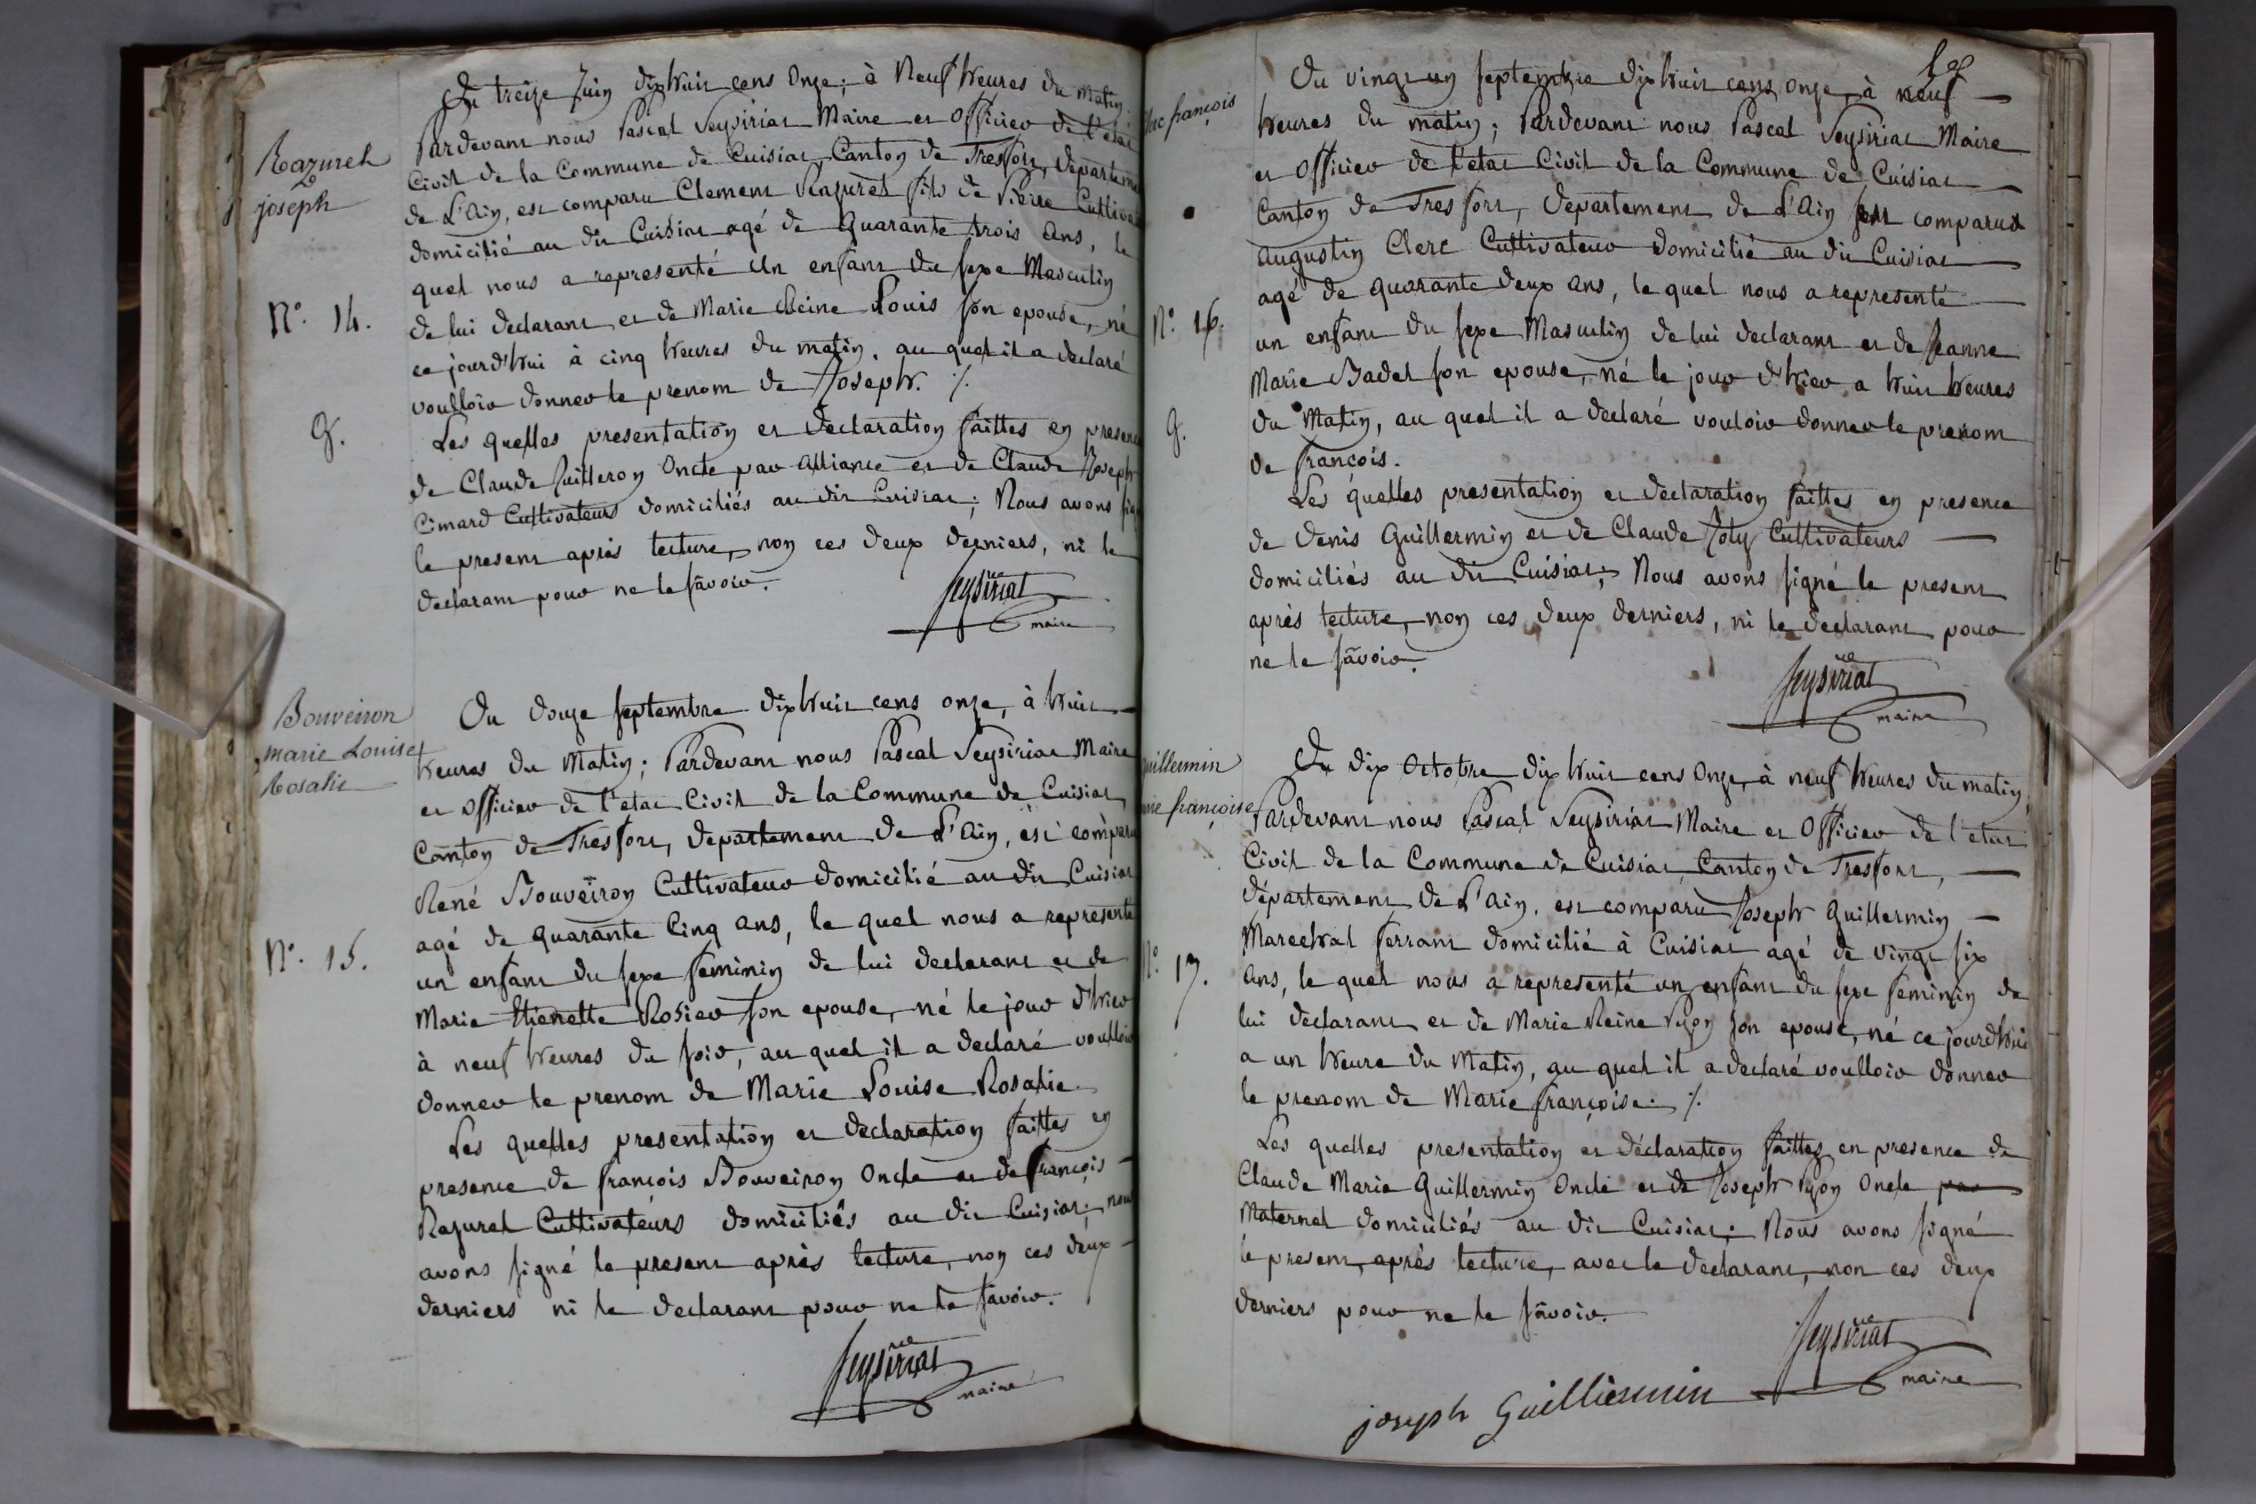 Razurel
joseph
N.° 14.
g.
Du treize Juin dixhuit cens Onze, à Neuf heures du matin.
Pardevant nous Pascal Seysiriat Maire et Officier de l'etat
Civil de la Commune de Cuisiat, Canton de Treffort, departeme
de L'Ain, est comparu Clement Razurel fils de Pierre Cultiva
domicilié au dit Cuisiat agé de Quarante trois ans, le
quel nous a representé Un enfant du sexe Masculin
de lui declarant et de Marie Reine Louis son epouse, né
ce jourd'hui à cinq heures du matin, au quel il a declaré
voulloir donner le prenom de Joseph. ./.
Les quelles presentation et declaration faittes en presence
de Claude Juilleron Oncle par alliance et de Claude Joseph
Cimard Cultivateurs domiciliés au dit Cuisiat; Nous avons sig
le present après lecture, non ces deux derniers, ni le
declarant pour ne le savoir.
Seysiriat
maire
Bouveiron
marie Louise
Rosalie
N.° 15.
Du douze septembre dixhuit cens onze, à huit
heures du Matin; Pardevant nous Pascal Seysiriat Maire
et Officier de l'etat Civil de la Commune de Cuisiat,
Canton de Treffort, departement de L'Ain, est comparu
René Bouveiron Cultivateur domicilié au dit Cuisiat
agé de quarante Cinq ans, le quel nous a representé
un enfant du sexe feminin de lui declarant et de
Marie Etienette Rosier son epouse, né le jour d'hier
à neuf heures du soir, au quel il a declaré voulloir
donner le prenom de Marie Louise Rosalie.
Les quelles presentation et declaration faittes en
presence de françois Bouveiron Oncle et de françois
Razurel Cultivateurs domiciliés au dit Cuisiat; nous
avons signé le present après lecture, non ces deux
derniers ni le declarant pour ne le savoir.
Seysiriat
maire
françois
N.° 16.
g.
Du vingt un septembre dixhuit cens onze, à neuf
heures du matin; Pardevant nous Pascal Seysiriat Maire
et Officier de l'etat Civil de la Commune de Cuisiat
Canton de Treffort, departement de L'Ain est comparu
augustin Clerc Cultivateur domicilié au dit Cuisiat
agé de quarante deux ans, le quel nous a representé
un enfant du sexe Masculin de lui declarant et de Jeanne
Marie Badel son epouse, né le jour d'hier a huit heures
du Matin, au quel il a declaré vouloir donner le prenom
de françois.
Les quelles presentation et declaration faittes en presence
de denis Guillermin et de Claude Joly Cultivateurs
domiciliés au dit Cuisiat; Nous avons signé le present
après lecture, non ces deux derniers, ni le declarant pour
ne le savoir.
Seysiriat
maire
uillermin
françoise
N.° 17.
Du dix Octobre dix huit cens Onze, à neuf heures du matin,
Pardevant nous Pascal Seysiriat Maire et Officier de l'etat
Civil de la Commune de Cuisiat, Canton de Treffort,
département de L'Ain, est comparu Joseph Guillermin
Marechal ferrant domicilié à Cuisiat agé de vingt six
ans, le quel nous a representé un enfant du sexe feminin de
lui declarant et de Marie Reine Pyon son epouse, né ce jourd'hui
a un heure du Matin, au quel il a declaré voulloir donner
le prenom de Marie françoise. ./.
Les quelles presentation et déclaration faittes en presence de
Claude Marie Guillermin Oncle et de Joseph Pyon Oncle
Maternel domiciliés au dit Cuisiat; Nous avons signé
le present, après lecture, avec le declarant, non ces deux
derniers pour ne le savoir.
Seysiriat
maire
joseph Guilliermin